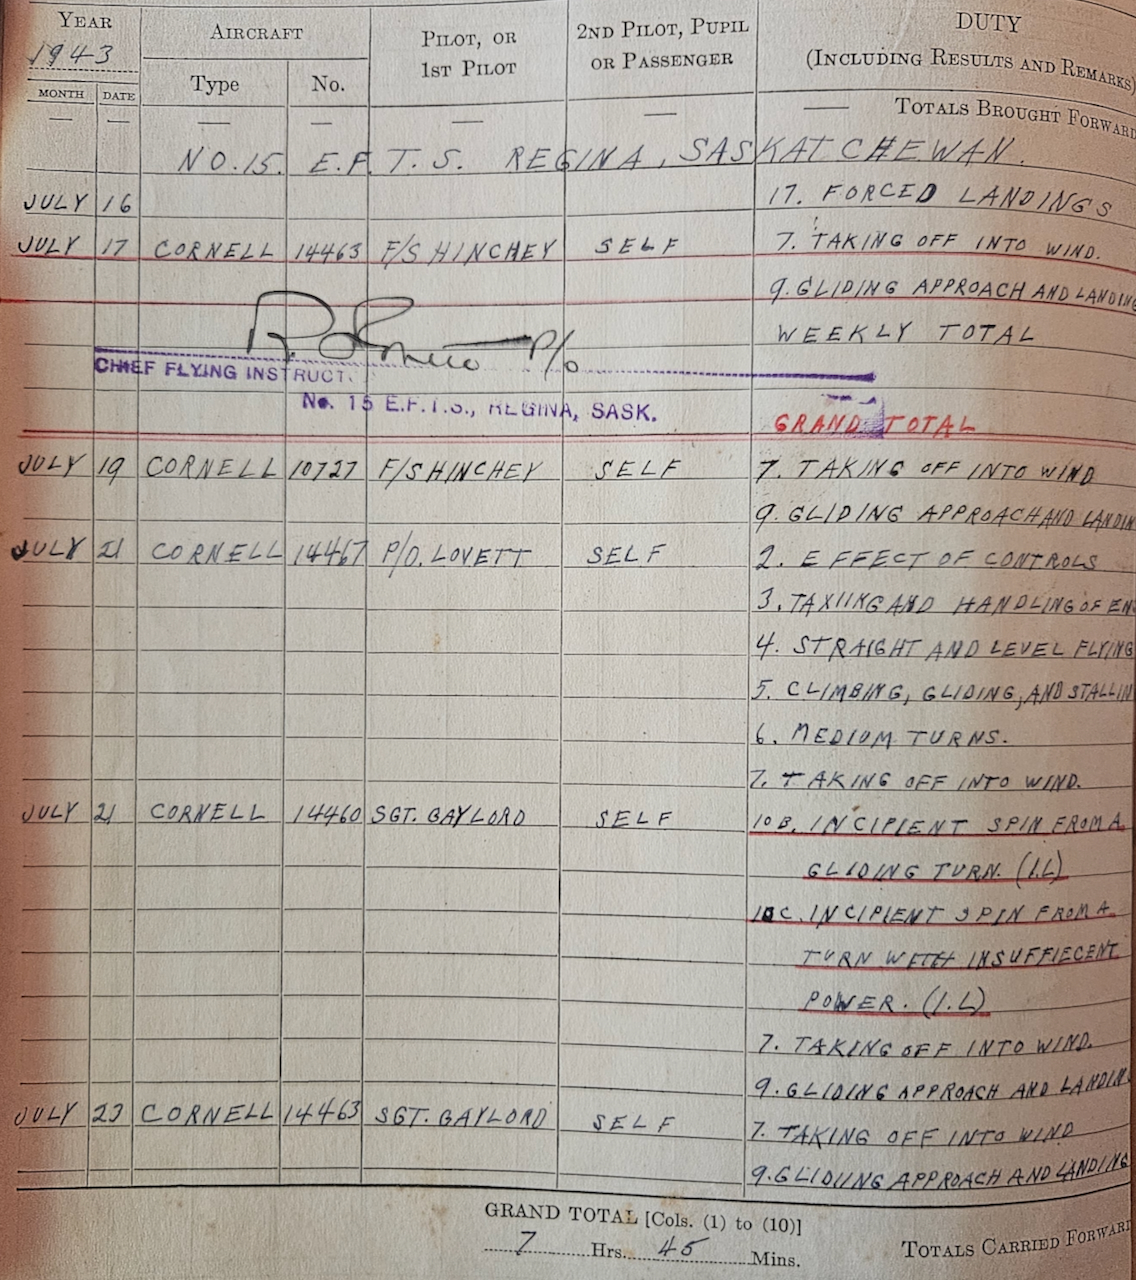 YEAR AIRCRAFT PILOT, OR 2ND PILOT, PUPIL DUTY
1943 1ST PILOT OR PASSENGER (INCLUDING RESULTS AND REMARKS)
MONTH DATE Type No.
— — — — — — —— TOTALS BROUGHT FORWARD
NO. 15. E.F.T.S. REGINA, SASKATCHEWAN.
JULY 16 17. FORCED LANDINGS
JULY 17 CORNELL 14463 F/S HINCHEY SELF 7. TAKING OFF INTO WIND.
9. GLIDING APPROACH AND LANDING
WEEKLY TOTAL
P/O
CHIEF FLYING INSTRUCT.
No. 15 E.F.T.S., REGINA, SASK.
GRAND TOTAL
JULY 19 CORNELL 10727 F/S HINCHEY SELF 7. TAKING OFF INTO WIND
9. GLIDING APPROACH AND LANDIN
JULY 21 CORNELL 14467 P/O. LOVETT SELF 2. EFFECT OF CONTROLS
3. TAXIING AND HANDLING OF EN
4. STRAIGHT AND LEVEL FLYING
5. CLIMBING, GLIDING, AND STALLIN
6. MEDIUM TURNS.
7. TAKING OFF INTO WIND.
JULY 21 CORNELL 14460 SGT. GAYLORD SELF 10 B. INCIPIENT SPIN FROM A
GLIDING TURN. (I.L)
10 C. INCIPIENT SPIN FROM A
TURN WITH INSUFFIECENT
POWER. (I.L)
7. TAKING OFF INTO WIND.
9. GLIDING APPROACH AND LANDIN
JULY 23 CORNELL 14463 SGT. GAYLORD SELF 7. TAKING OFF INTO WIND
9. GLIDIING APPROACH AND LANDING
GRAND TOTAL [Cols. (1) to (10)]
7 Hrs. 45 Mins. TOTALS CARRIED FORWARD